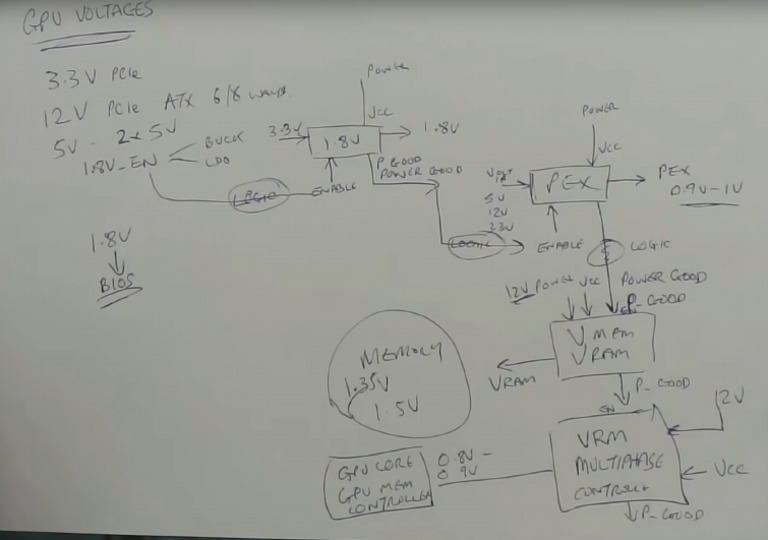 GPU VOLTAGES
3.3V PCIe
12V PCIe ATX 6/8 ways.
5V - 2x5V
1.8V-EN
BUCK
LDO
LOGIC
ENABLE
POWER
VCC
3.3V
1.8V
1.8V
P GOOD
POWER GOOD
1.8V
BIOS
POWER
VCC
5V
12V
3.3V
PEX
PEX
0.9V-1V
LOGIC
ENABLE
LOGIC
POWER GOOD
P-GOOD
12V POWER VCC
EN
V MEM
VRAM
VRAM
P_GOOD
MEMORY
1.35V
1.5V
EN
VRM
MULTIPHASE
CONTROLL
12V
VCC
P-GOOD
GPU CORE
GPU MEM
CONTROLLER
0.8V -
0.9V